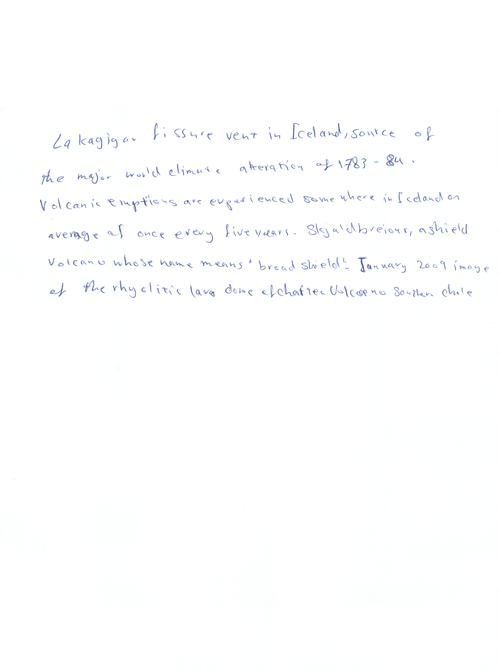 Lakagigar fissure vent in Iceland, source of
the major world climate alteration of 1783 - 84.
Volcanic emptions are experienced somewhere in Iceland on
average of once every five years. Skjaldbreiour, a shield
volcano whose name means 'broad shield'. January 2009 image
of the rhyolitic lava dome of chaiten Volcano Southern chile